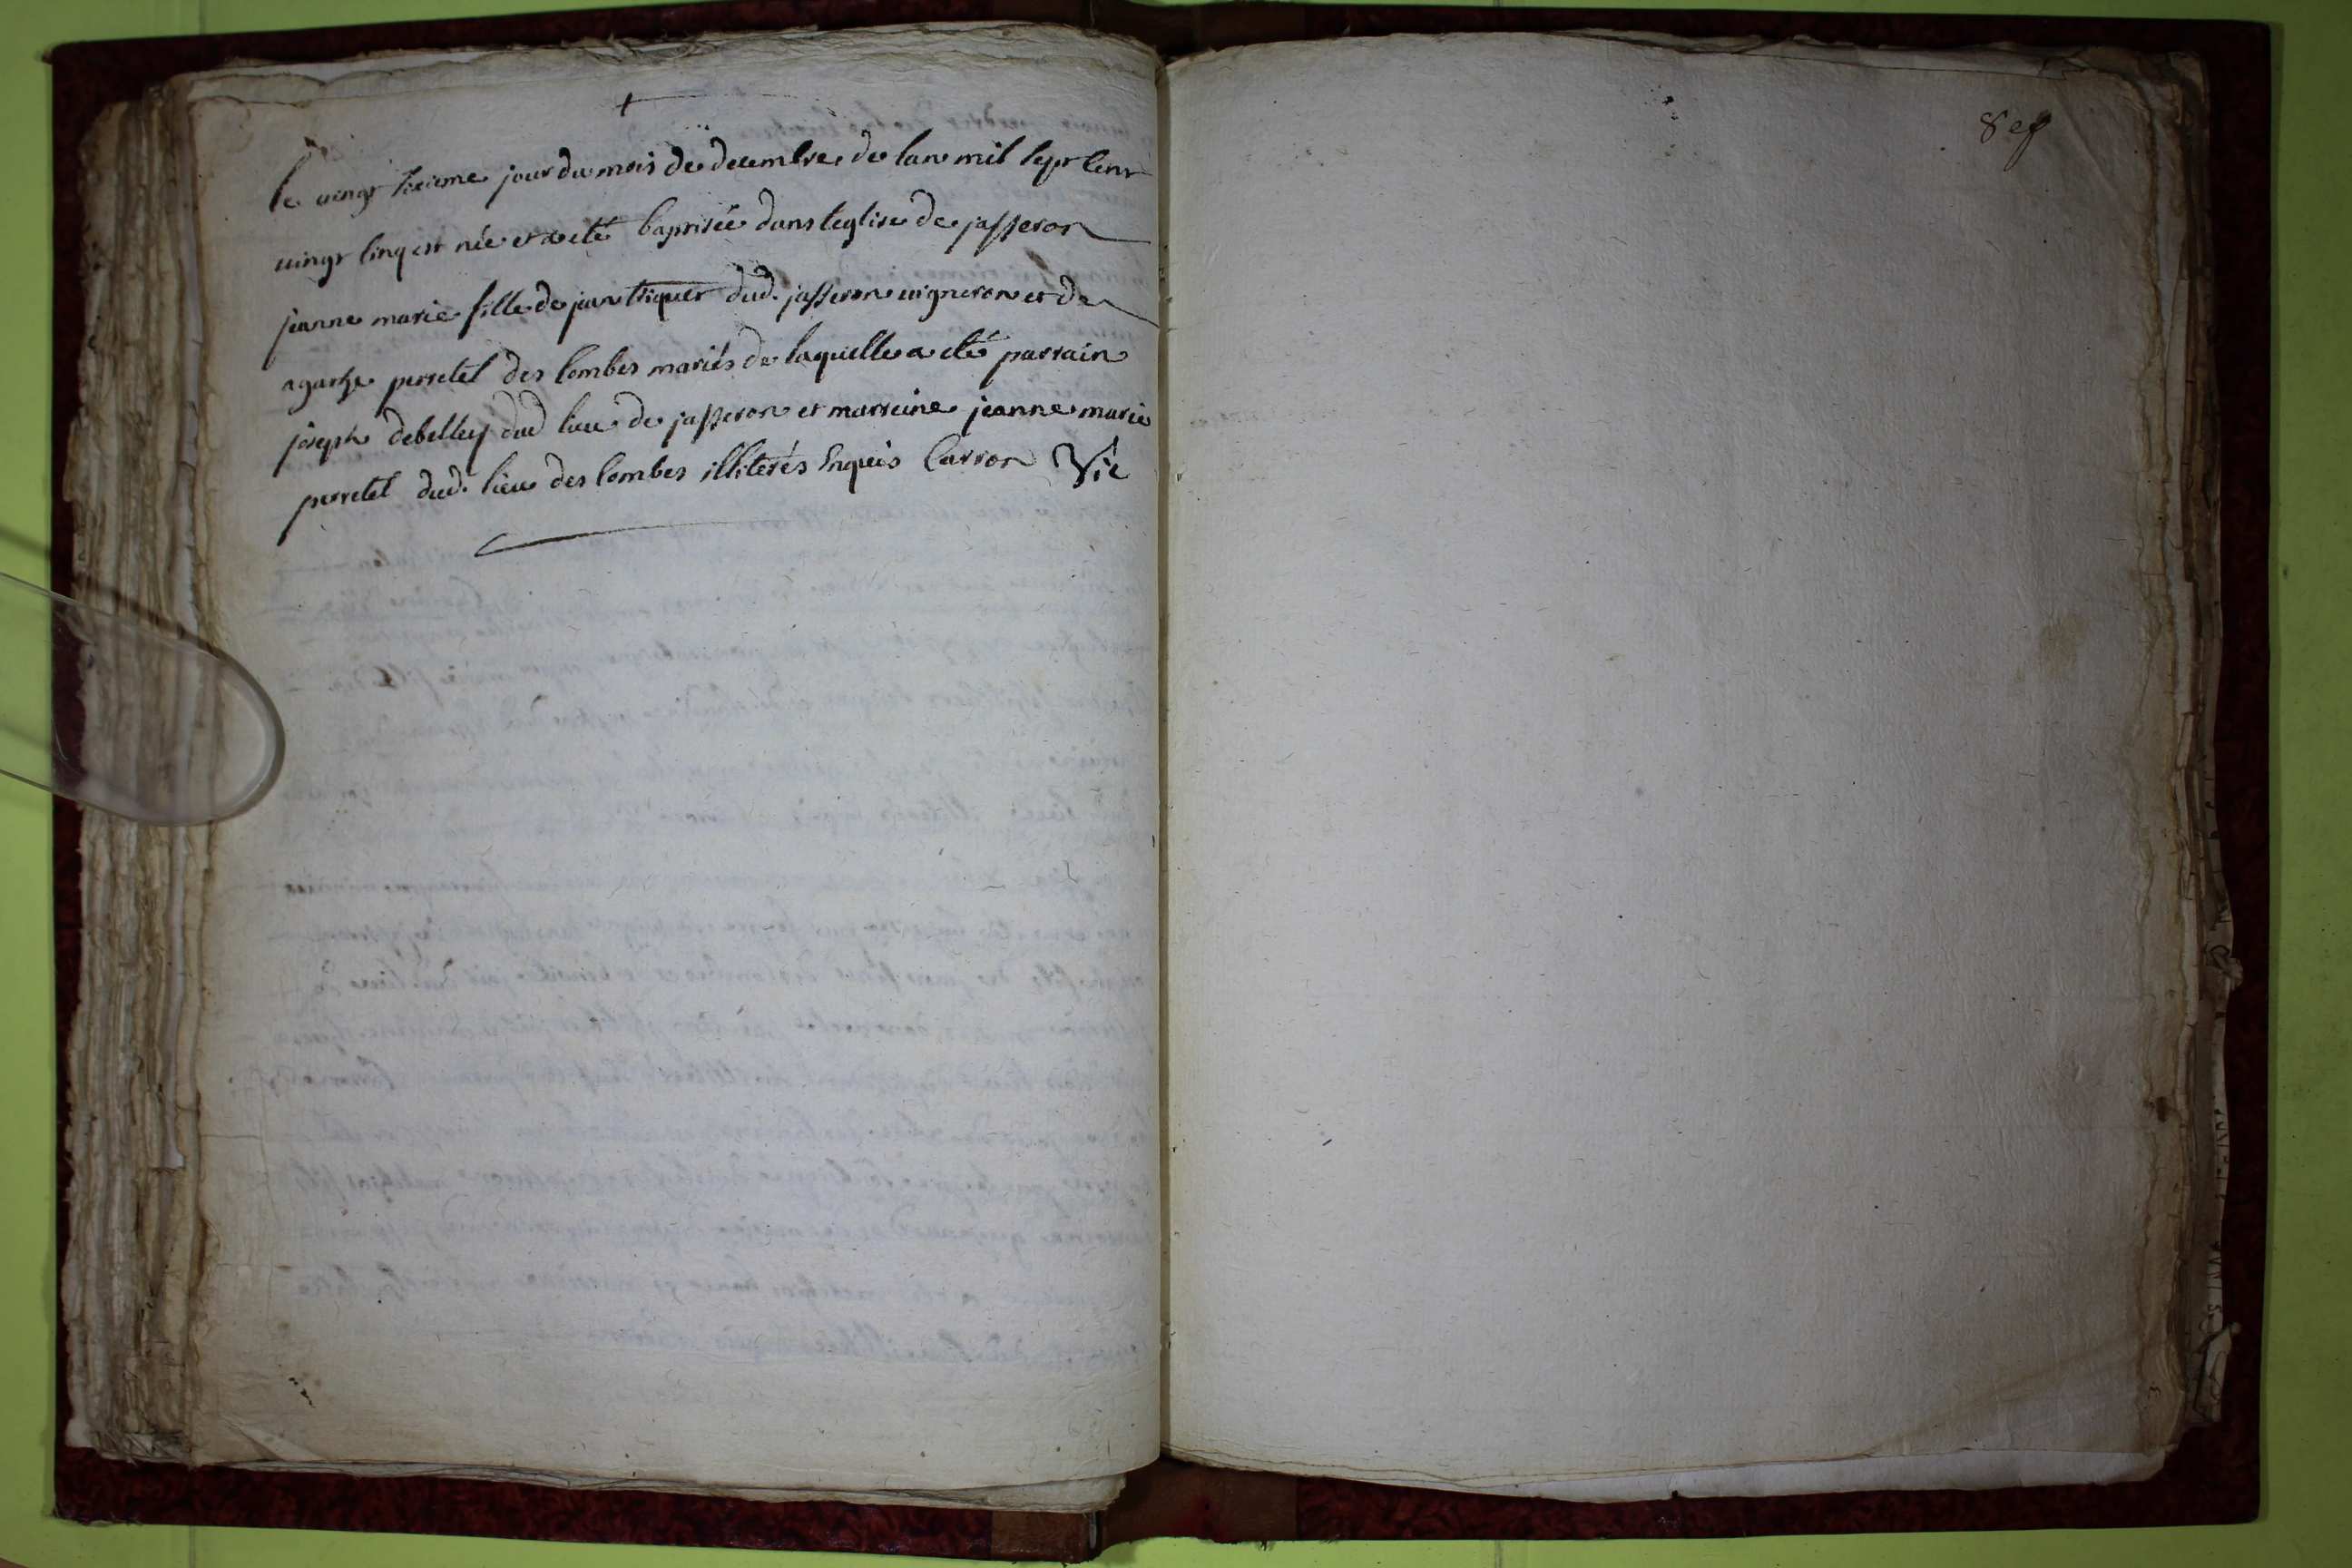 le vingt sixieme jour du mois de decembre de lan mil sept cent
vingt cinq est née et a eté baptisée dans leglise de jasseron
jeanne marie fille de jean triquet dud. jasseron vigneron et de
agathe perretel des combes mariés de laquelle a eté parrain
joseph debelley dud lieu de jasseron et marreine jeanne marie
perretel dud. lieu des combes illiterés Enquis Carron Vic